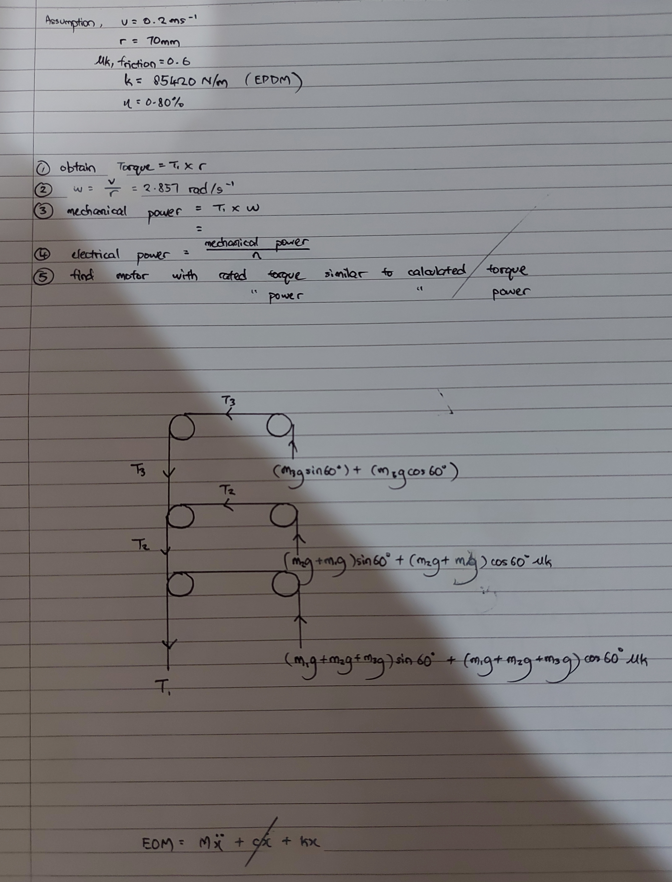 Assumption, v = 0.2 ms⁻¹
r = 70mm
μk, friction = 0.6
k = 85420 N/m (EPDM)
η = 0.80%
① obtain Torque = T₁ × r
② w = v/r = 2.857 rad/s⁻¹
③ mechanical power = T₁ × w
=
④ electrical power = mechanical power / n
⑤ find motor with rated torque similar to calculated torque
" power " power
T₃
T₃
(m₃gsin60°) + (m₃gcos60°)
T₂
T₂
(m₂g+m₁g)sin60° + (m₂g+m₁g)cos60° μk
(m₁g+m₂g+m₃g)sin60° + (m₁g+m₂g+m₃g)cos60° μk
T₁
EOM = Mẍ + cẋ + kx